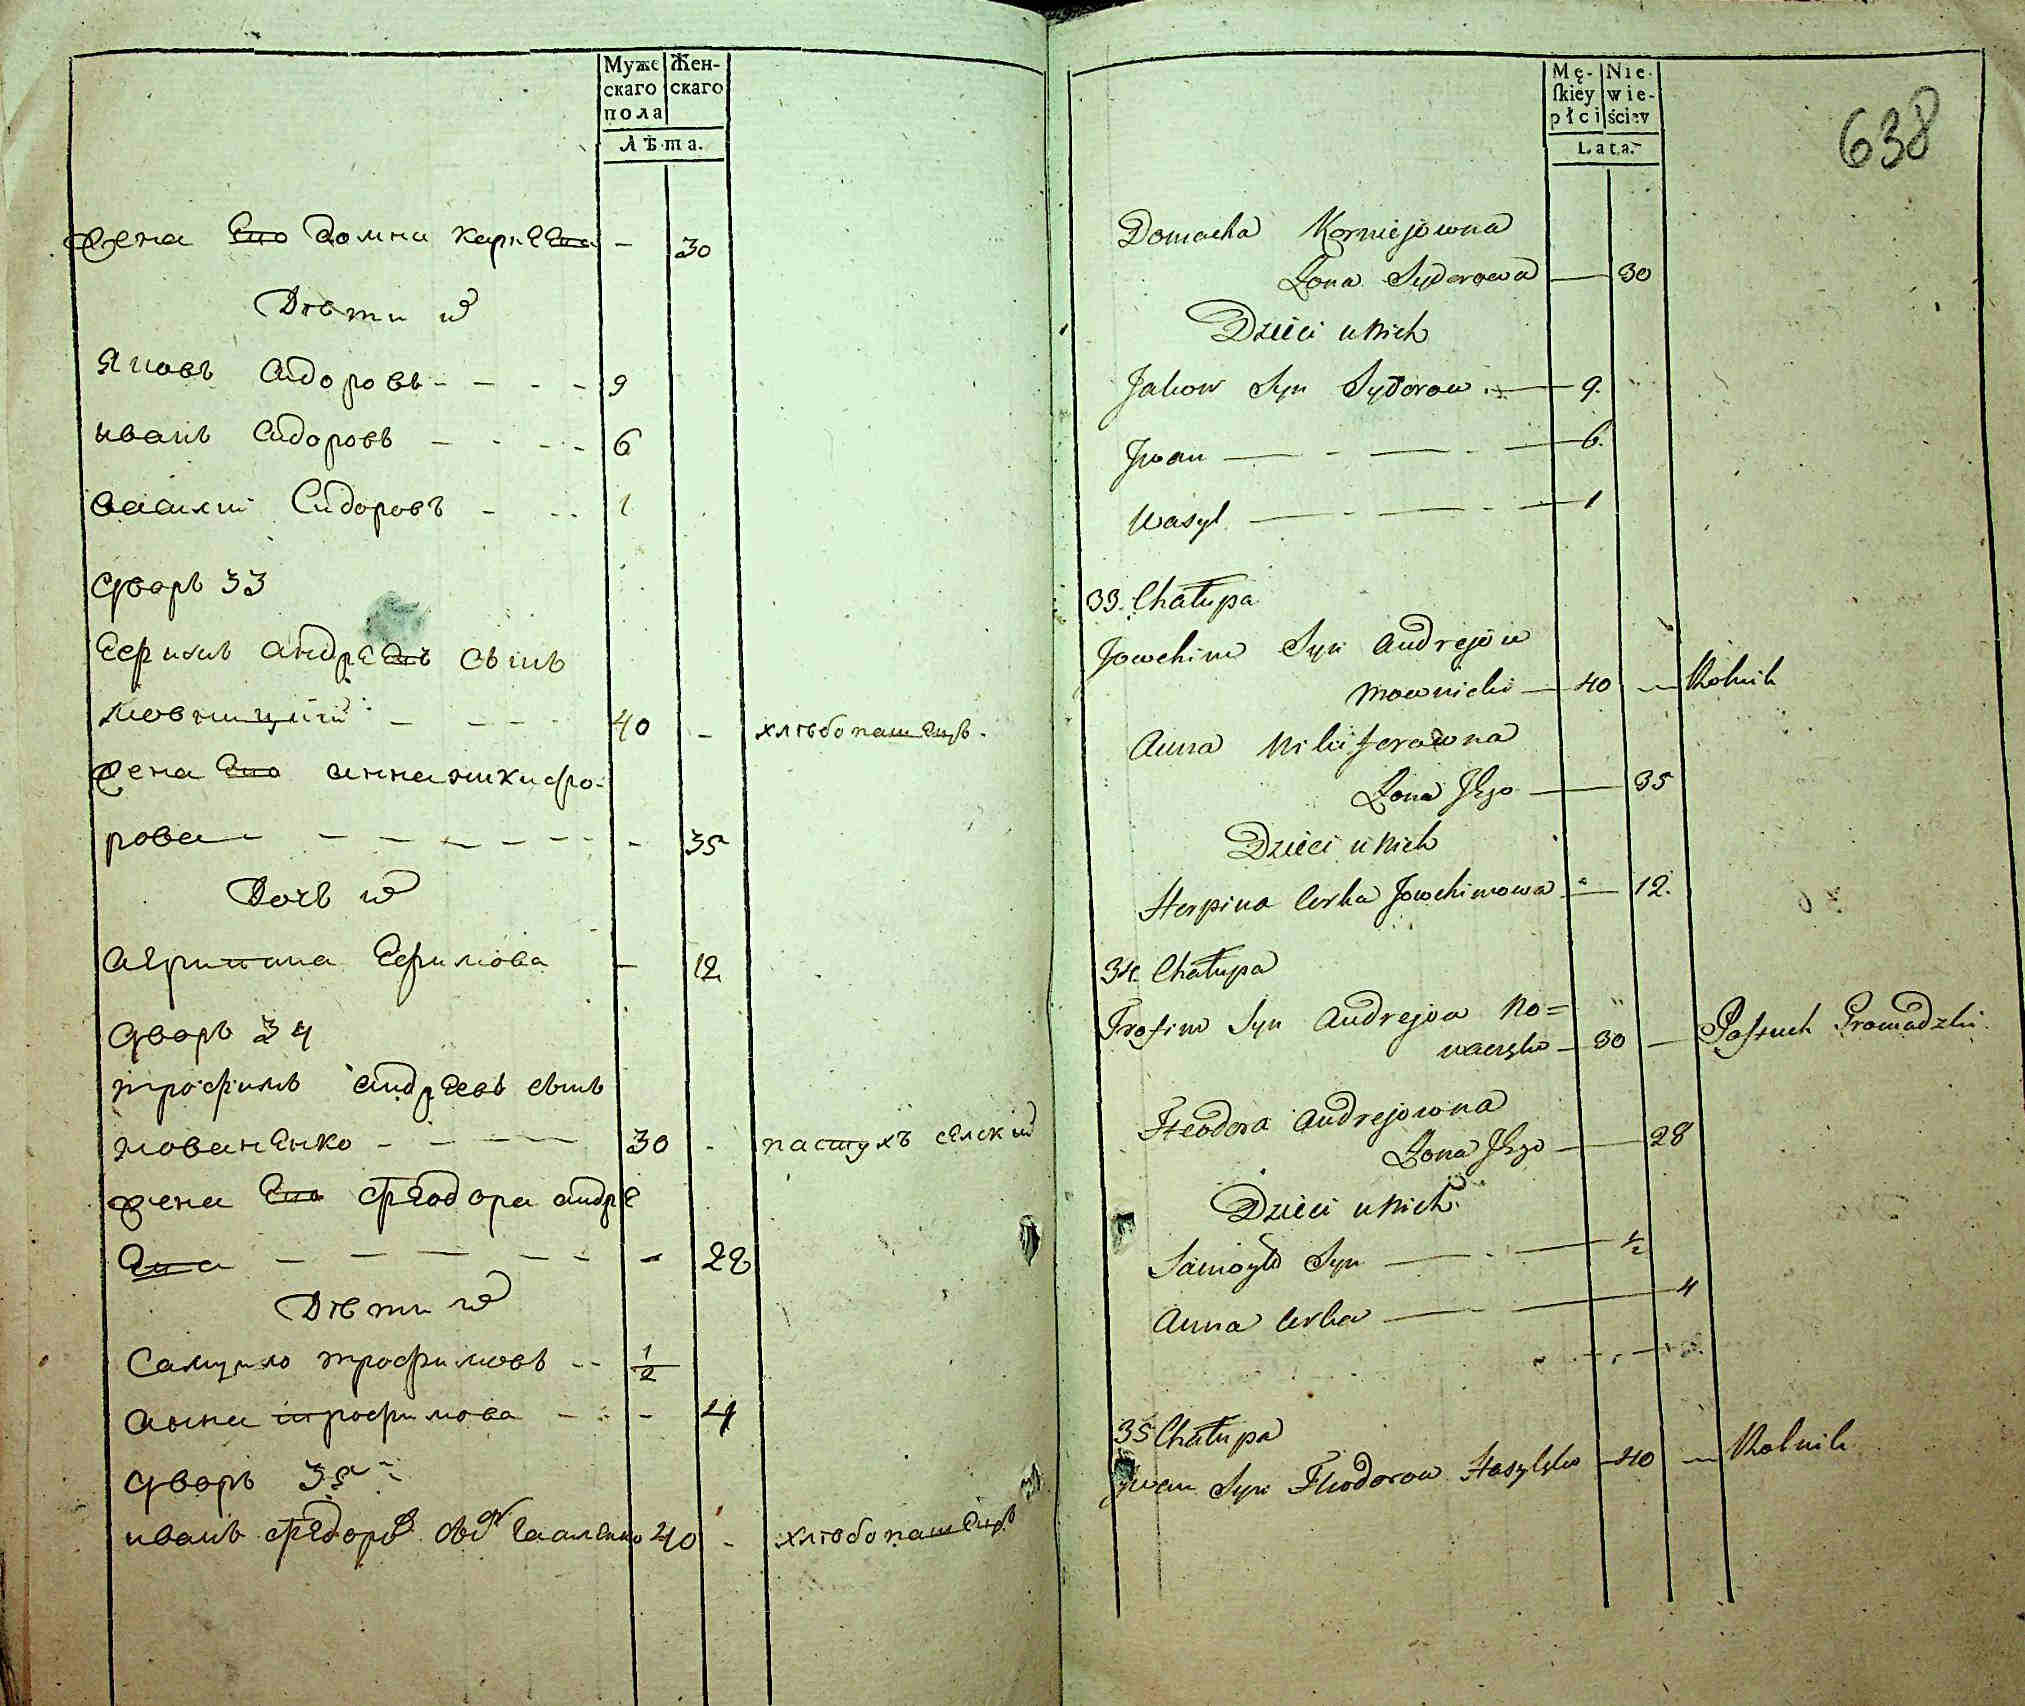 Муже
скаго
пола
Жен-
скаго
Лѣта.
жена его домна карнѣева - 30
Дѣти их
Яковъ Сидоровъ - - - - 9
иванъ Сидоровъ - - - - 6
василий Сидоровъ - - - 1
дворъ 33
Ефимъ андрѣевъ сынъ
40 - хлѣбопашецъ.
жена его анна никифо-
рова - - - - - - - 35
Дочь их
Ефимова - 12
дворъ 34
трофимъ андреевъ сынъ
нованенко - - - - 30 - пастухъ селский
жена его феодора андре
ева - - - - - - 28
Дѣти их
Самуило трофимовъ - - 1/2
анна трофимова - - - 4
дворъ 35
иванъ федоровъ 40 - хлѣбопашецъ
Mę-
ſkiey
płci
Nie-
wie-
ściey
Lata.
638
Domacha Korniejowna
Żona Sydorowa — 30
Dzieci u Nich
Jakow Syn Sydorow — 9.
Jwan — - — - — 6.
Wasyl — - — - — 1
33. Chałupa
Jowchim Syn Andrejow
— 40 — Rolnik
Anna Nikiferowna
Żona Jego — 35
Dzieci u Nich
Herpina Corka Jowchimowa — 12.
34. Chałupa
Trofim Syn Andrejow No=
— 30 — Paſtuch Gromadzki.
Fteodora Andrejowna
Żona Jego — 28
Dzieci u Nich
Samoyło Syn — - — 1/2
Anna Corka — - — 4
35 Chałupa
Jwan Syn Fteodorow — 40 — Rolnik